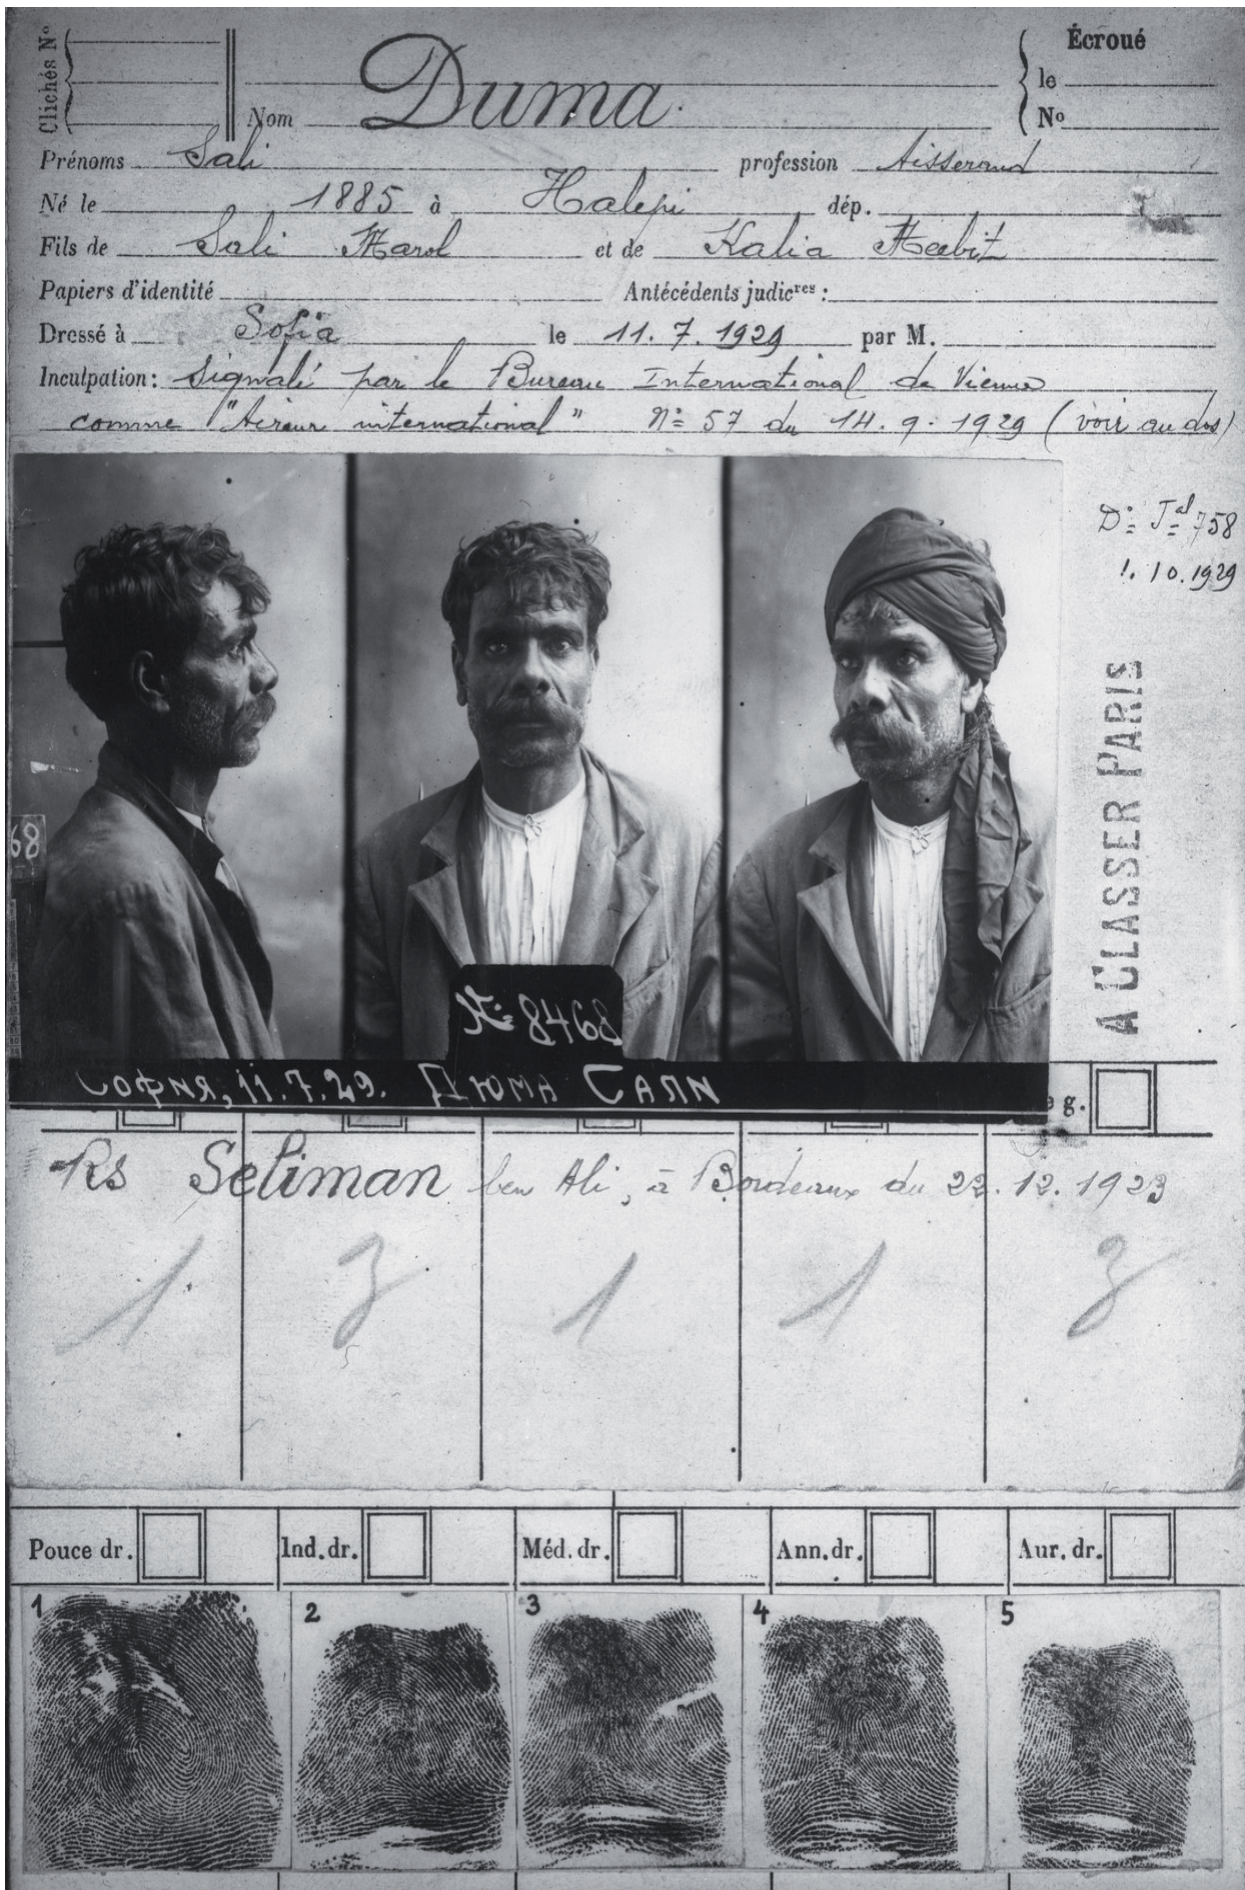 Clichés Nº
Écroué
le
Nº
Nom Duma
Prénoms Sali profession Tisserand
Né le 1885 à Halepi dép.
Fils de Sali Marol et de Kalia
Papiers d'identité Antécédents judicres :
Dressé à Sofia le 11. 7. 1929 par M.
Inculpation: Signalé par le Bureau International de Vienne
comme "Tireur international" Nº 57 du 14. 9. 1929 (voir au dos)
Dr Jal 758
1. 10. 1929
A CLASSER PARIS
68
Nº 8468
София, 11.7.29. Дюма Сали
g.
RS Seliman ben Ali, à Bordeaux du 22. 12. 1923
1 3 1 1 3
Pouce dr. Ind. dr. Méd. dr. Ann. dr. Aur. dr.
1 2 3 4 5